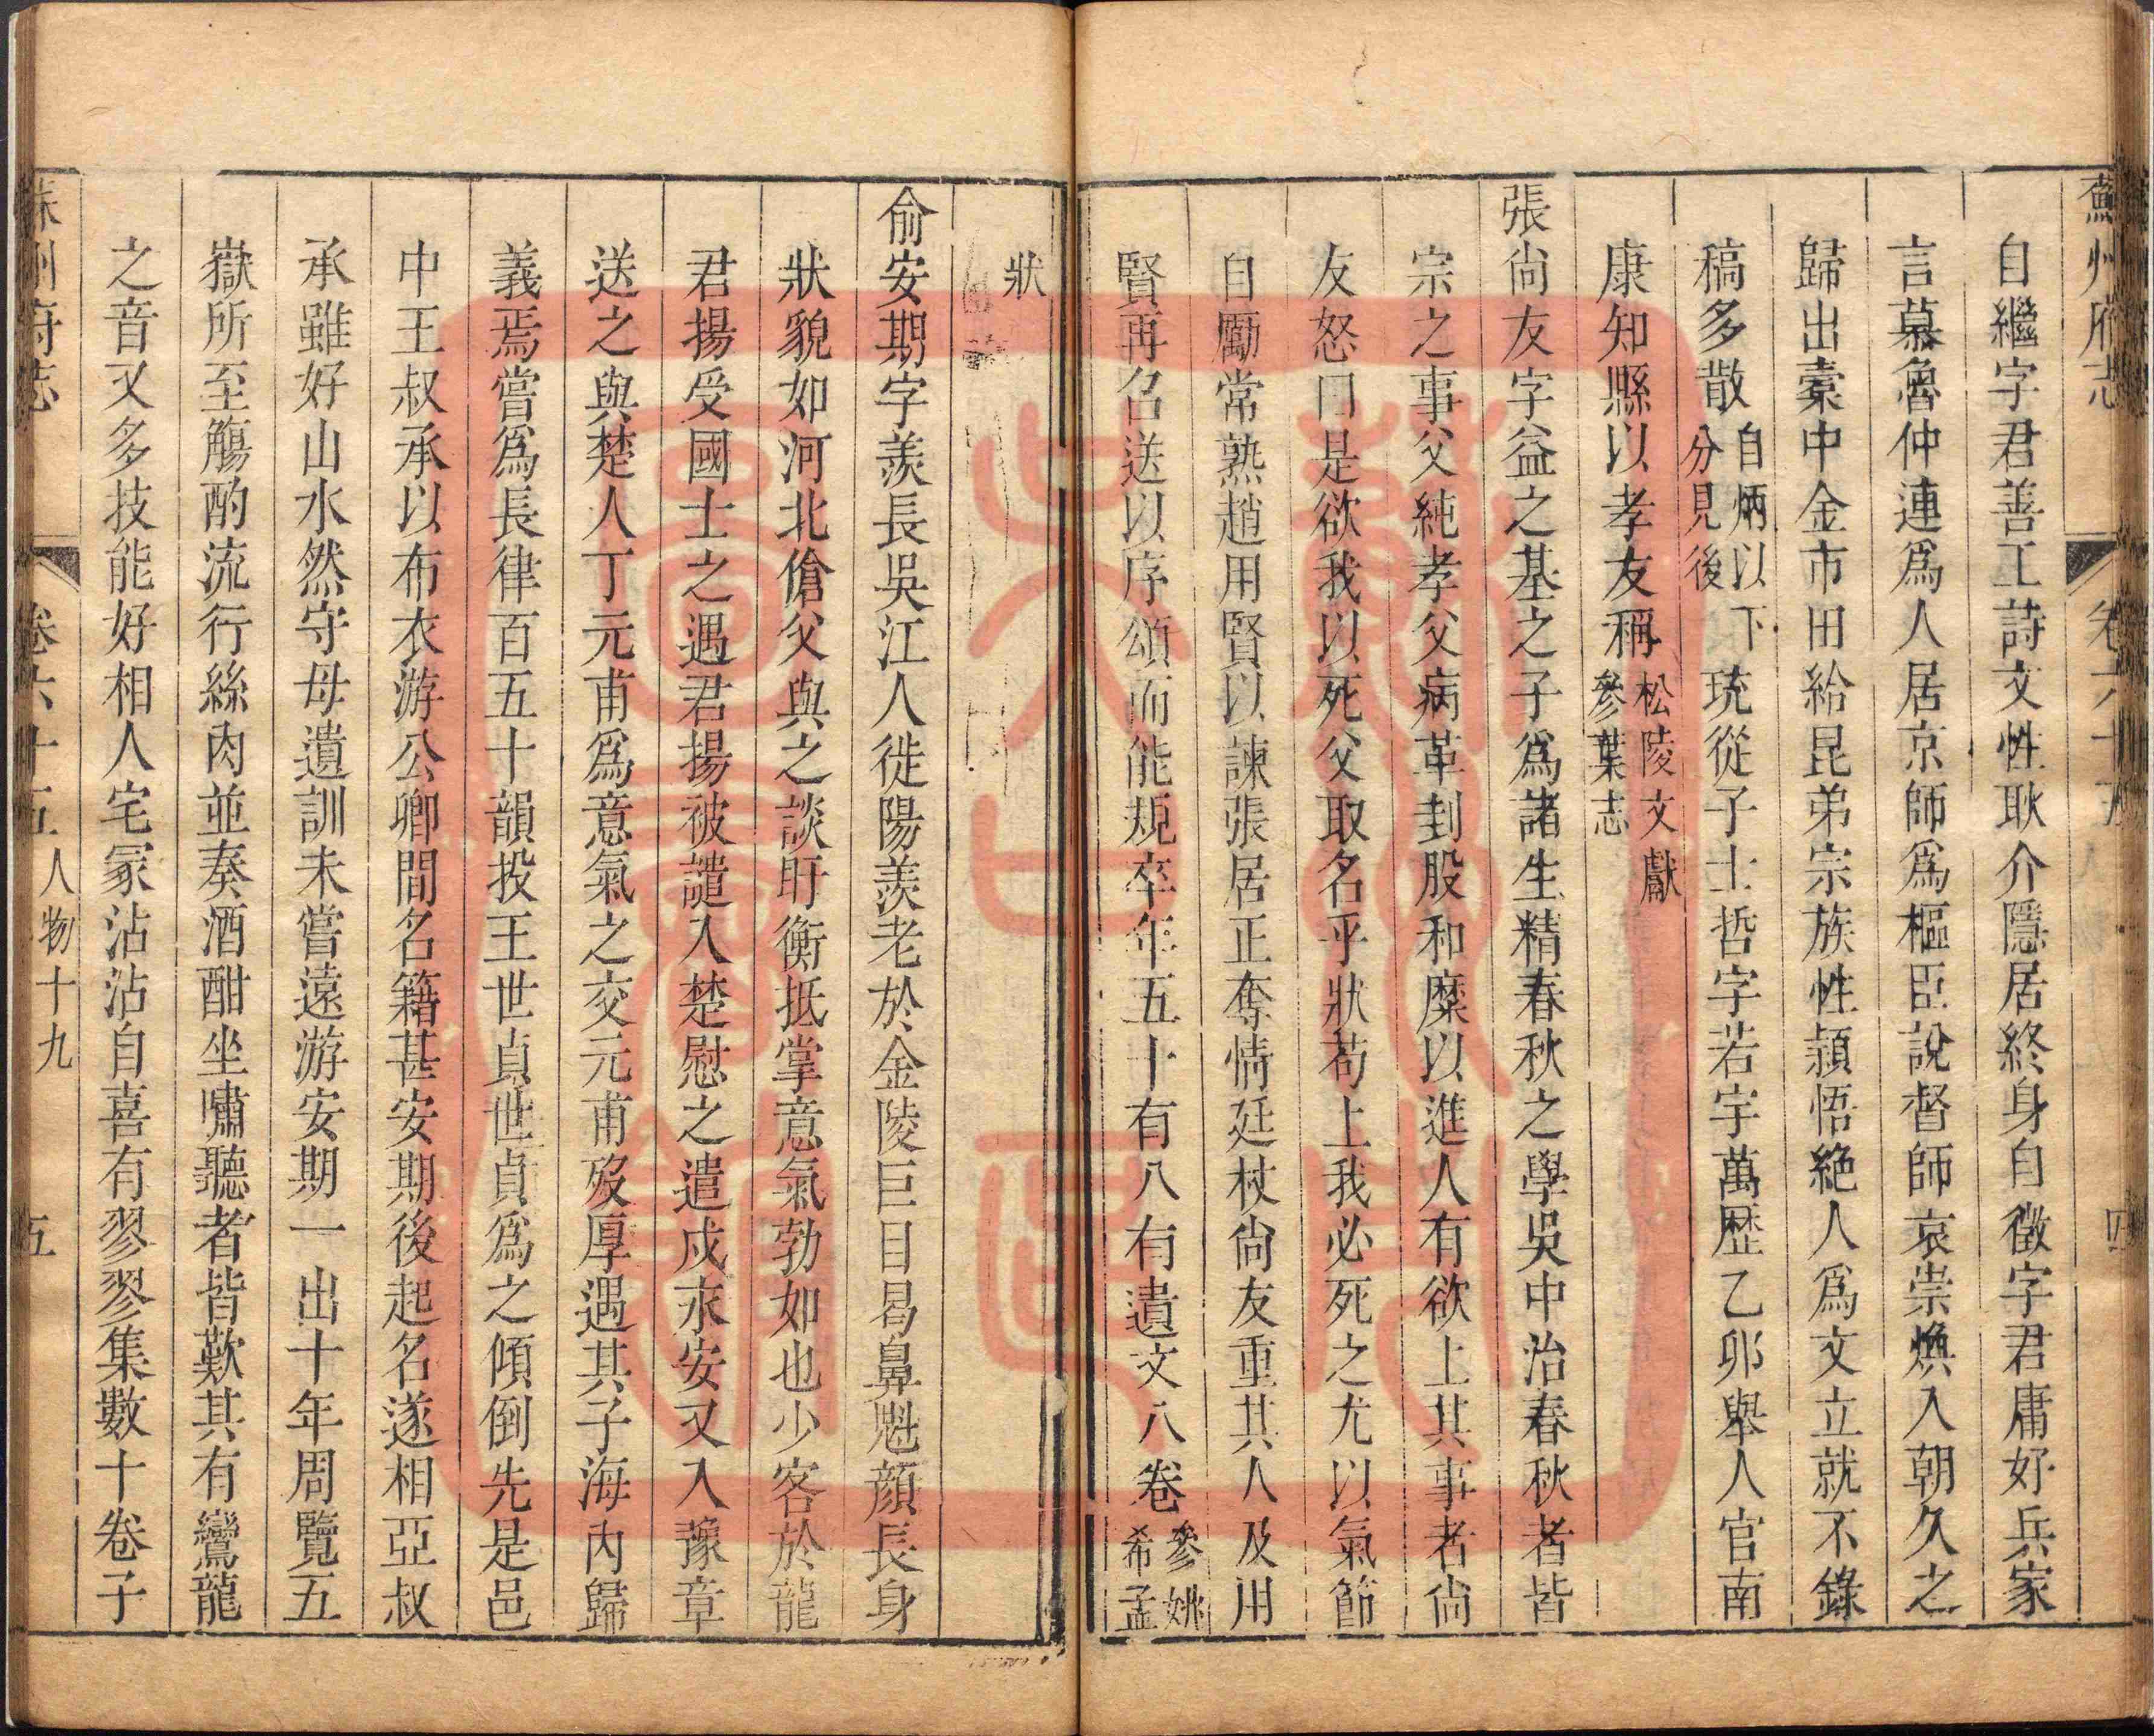 蘇州府志
卷六十五
四
自繼字君善工詩文性耿介隱居終身自徵字君庸好兵家
言慕魯仲連爲人居京師爲樞臣說督師哀崇煥入朝久之
歸出橐中金市田給昆弟宗族性潁悟絶人爲文立就不錄
稿多散自炳以下分見後珫從子士哲字若宇萬歷乙卯舉人官南
康知縣以孝友稱松陵文獻參葉志
張尙友字益之基之子爲諸生精春秋之學吳中治春秋者皆
宗之事父純孝父病革刲股和糜以進人有欲上其事者尙
友怒曰是欲我以死父取名乎狀苟上我必死之尤以氣節
自勵常熟趙用賢以諫張居正奪情廷杖尙友重其人及用
賢再召送以序頌而能規卒年五十有八有遺文八卷參姚希孟
狀
俞安期字羨長吳江人徙陽羨老於金陵巨目曷鼻魁顔長身
狀貌如河北傖父與之談盱衡抵掌意氣勃如也少客於龍
君揚受國士之遇君揚被譴入楚慰之遣戍永安又入豫章
送之與楚人丁元甫爲意氣之交元甫歿厚遇其子海內歸
義焉嘗爲長律百五十韻投王世貞世貞爲之傾倒先是邑
中王叔承以布衣游公卿間名籍甚安期後起名遂相亞叔
承雖好山水然守母遺訓未嘗遠游安期一出十年周覽五
嶽所至觴酌流行絲肉並奏酒酣坐嘯聽者皆歎其有鸞龍
之音又多技能好相人宅冢沾沾自喜有翏翏集數十卷子
蘇州府志
卷六十五
人物十九
五